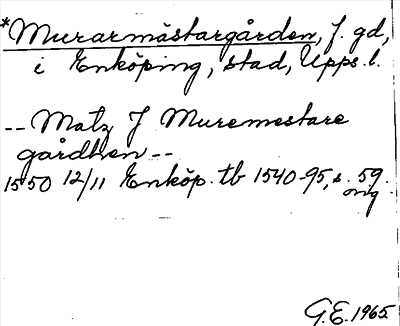 *Murarmästargården, f. gd,
i Enköping, stad, Upps. l.
-- Matz J Muremestare
gårdhen --
1550 12/11 Enköp. tb 1540-95, s. 59.
orig
G.E. 1965